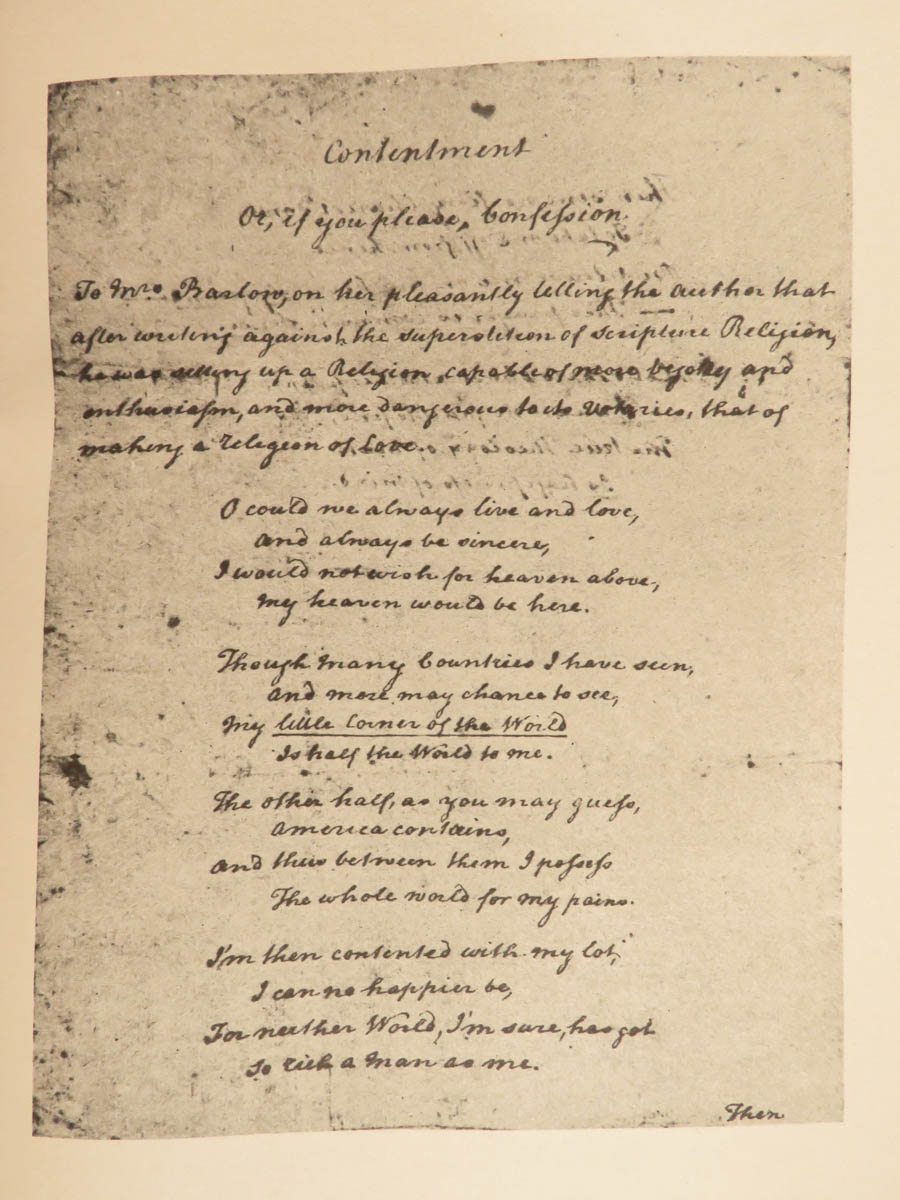 Contentment
Or, if you please, Confession
To Mrs. Barlow, on her pleasantly telling the author that
after writing against the superstition of Scripture Religion,
he was setting up a Religion, capable of more bigotry and
enthusiasm, and more dangerous to its Votaries, that of
making a religion of Love.
O could we always live and love,
and always be sincere,
I would not wish for heaven above,
My heaven would be here.
Though many Countries I have seen,
and more may chance to see,
My little Corner of the World
Is half the World to me.
The other half, as you may guess,
America contains,
and thus between them I possess
The whole world for my pains.
I'm then contented with my lot,
I can no happier be,
For neither World, I'm sure, has got
So rich a Man as me.
Then